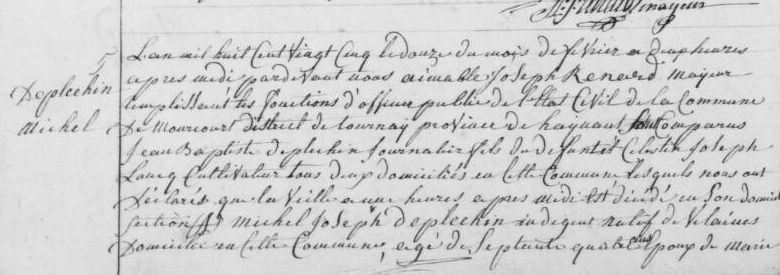 Renard mayeur
5
Deplechin
Michel
L'an mil huit Cent Vingt Cinq le douze du mois de fevrier a deux heures
apres midi pardevant nous aimable Joseph Renard Mayeur
remplissant les fonctions d'officier public de l'Etat Civil de la Commune
De Mourcourt district de tournay province de haynaut sont Comparus
Jean Baptiste deplechin Journalier fils du defunt et Celestin Joseph
Cultivateur tous deux domiciliés en Cette Commune lesquels nous ont
Déclarés que la Veille a une heures apres midi Est décédé en Son domicile
Section Michel Joseph Deplechin indigent natif de Velaines
Domicilié en Cette Commune, agé de Septente quatre ans Epoux de Marie